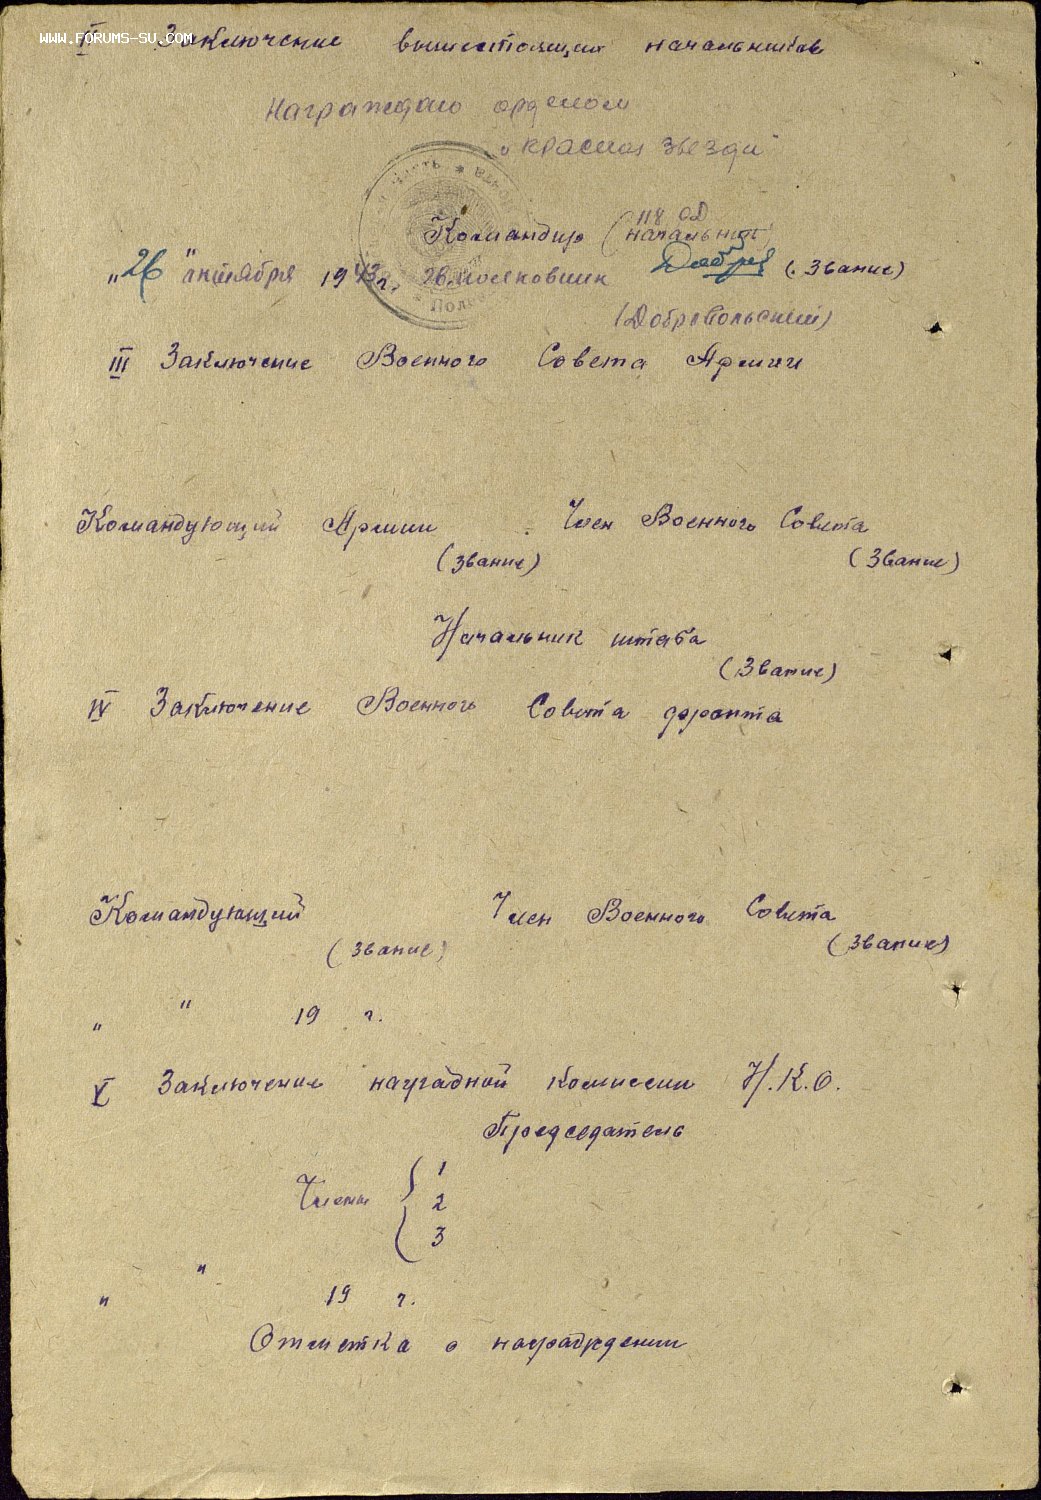 WWW.FORUMS-SU.COM
II Заключение вышестоящих начальников
Награждаю орденом
"Красная звезда"
118 СД
Командир (начальник)
"26" октября 1943 г. гв. полковник (Звание)
(Добровольский)
III Заключение Военного Совета Армии
Командующий Армии Член Военного Совета
(Звание) (Звание)
Начальник штаба
(Звание)
IV Заключение Военного Совета фронта
Командующий Член Военного Совета
(Звание) (Звание)
" " 19 г.
V Заключение наградной комиссии Н.К.О.
Председатель
Члены { 1
2
3
" " 19 г.
Отметка о награждении